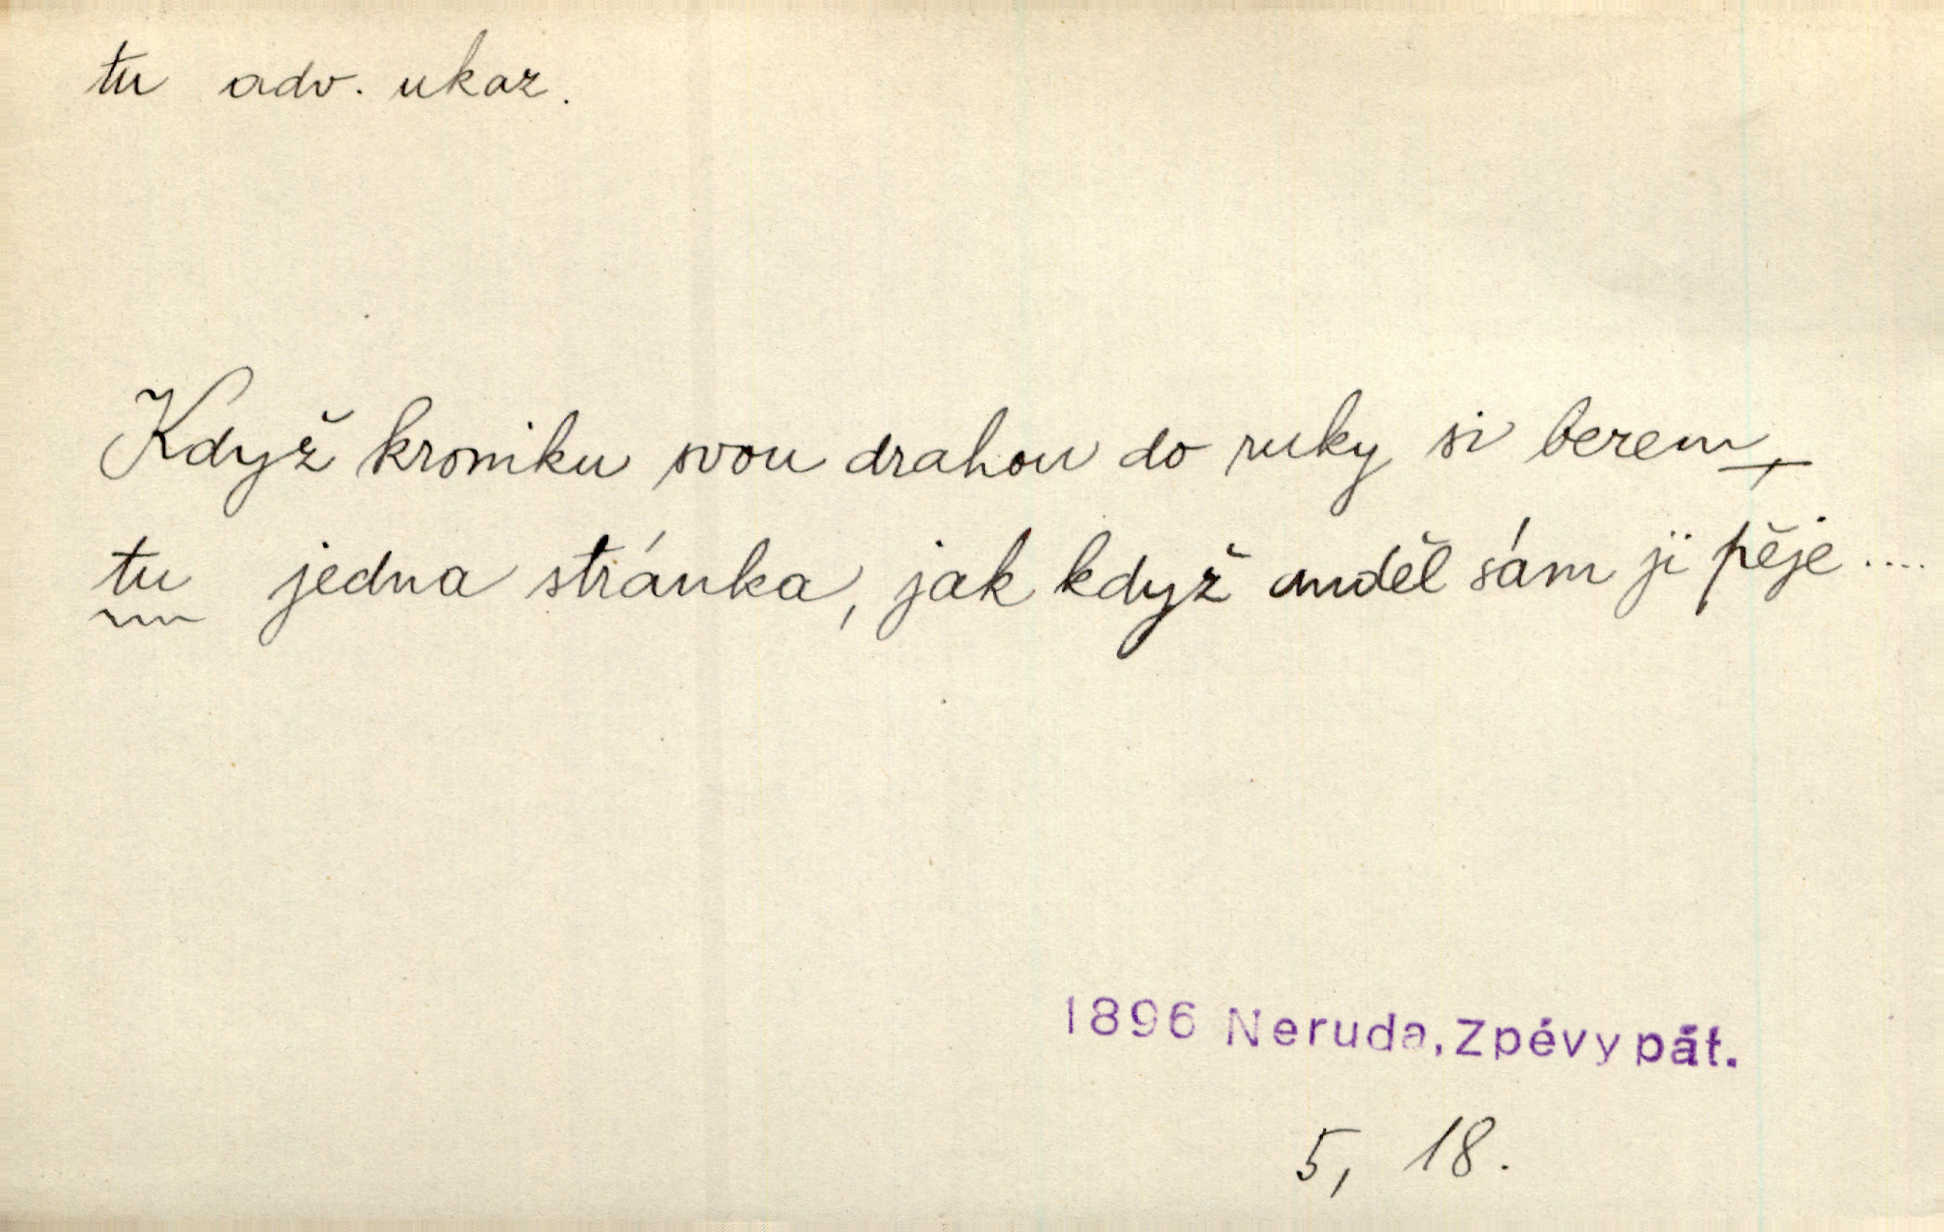 tu adv. ukaz.
Když kroniku svou drahou do ruky si berem,
tu jedna stránka, jak když anděl sám ji pěje....
1896 Neruda, Zpěvy pát.
5, 18.